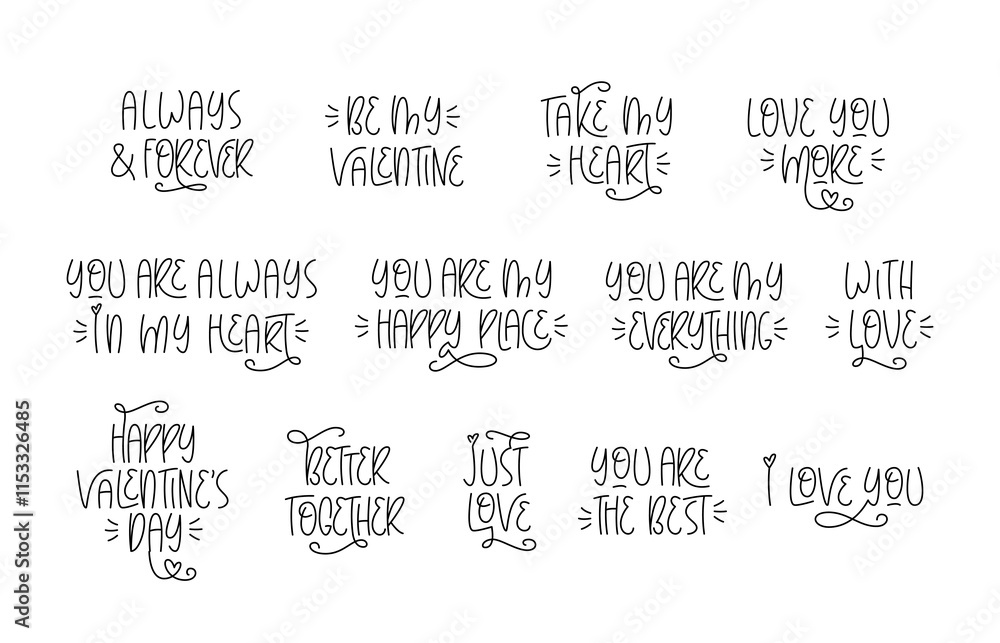 ALWAYS
& FOREVER
BE MY
VALENTINE
TAKE MY
HEART
LOVE YOU
MORE
YOU ARE ALWAYS
IN MY HEART
YOU ARE MY
HAPPY PLACE
YOU ARE MY
EVERYTHING
WITH
LOVE
HAPPY
VALENTINE'S
DAY
BETTER
TOGETHER
JUST
LOVE
YOU ARE
THE BEST
I LOVE YOU
Adobe Stock | #1153326485